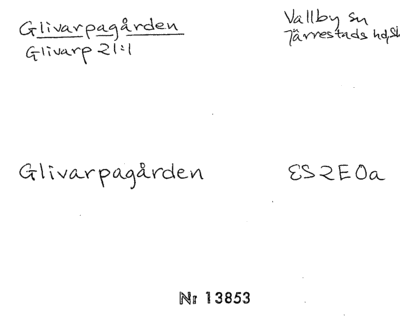 Glivarpagården
Glivarp 21:1
Vallby sn
Järrestads hd, Sk
Glivarpagården
ES2E0a
Nr 13853